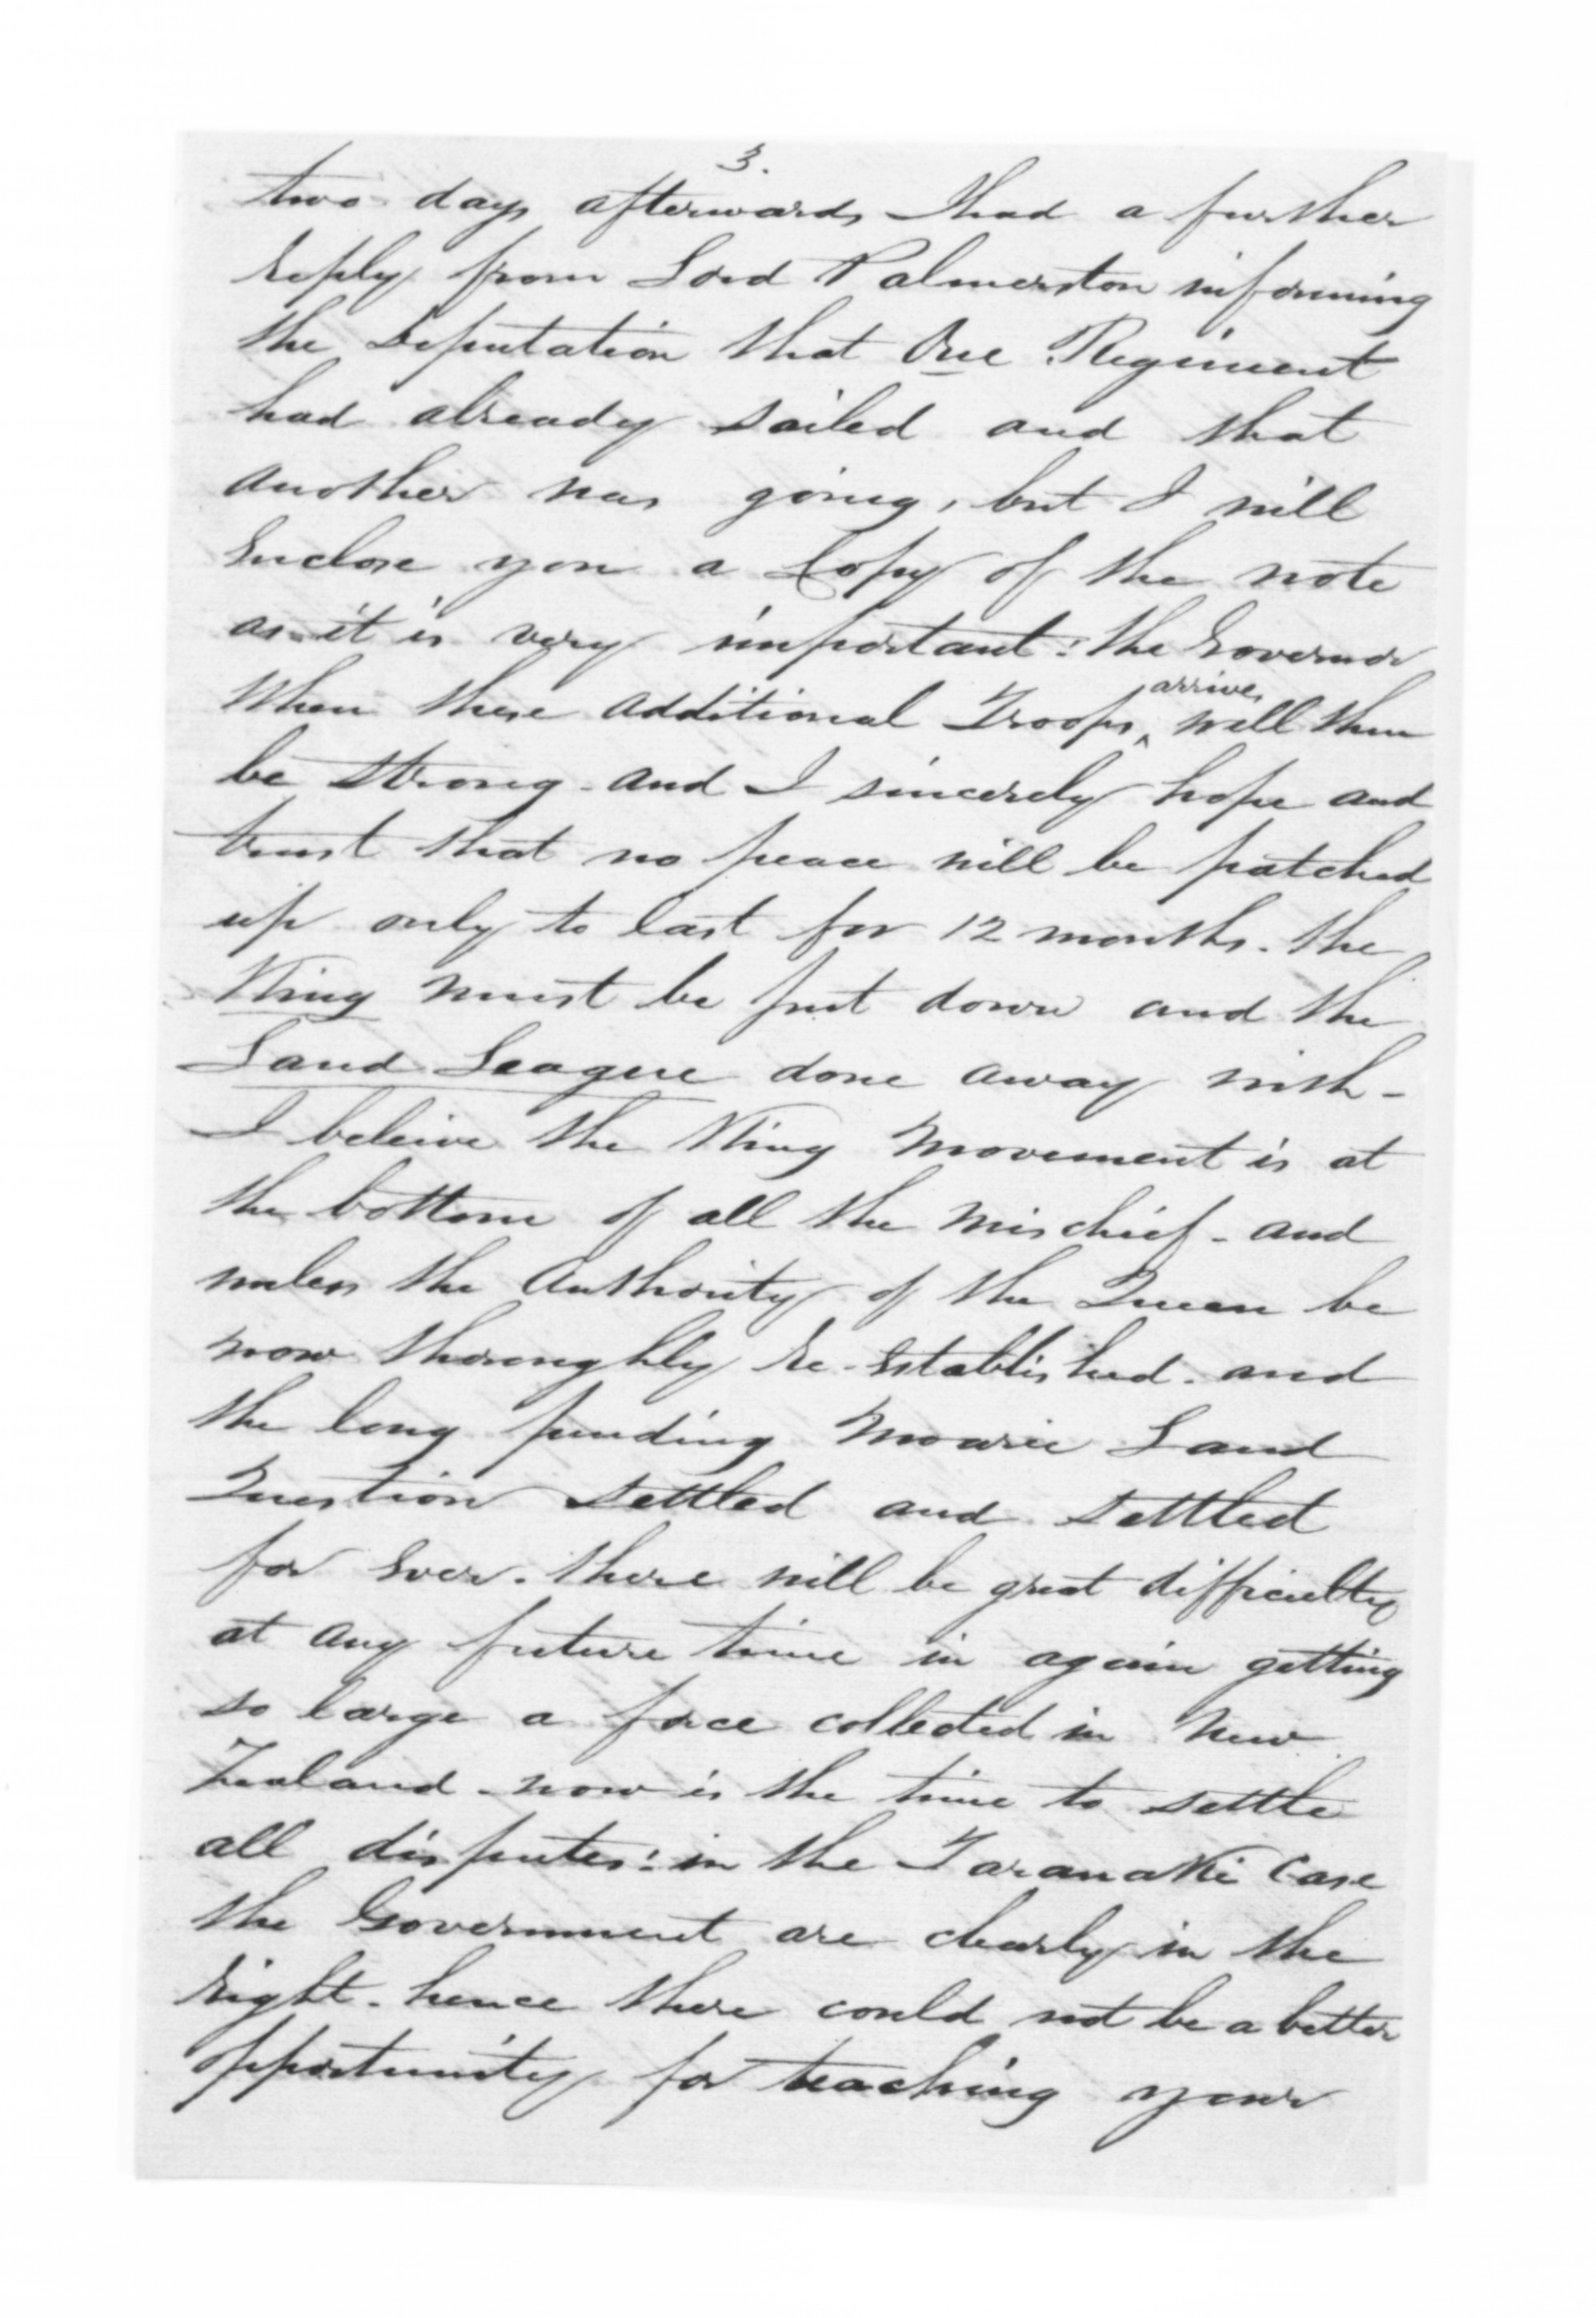 3.
two days afterwards I had a further
reply from Lord Palmerston informing
the Deputation that One Regiment
had already sailed and that
another was going, but I will
Enclose you a Copy of the note
as it is very important: the Governor
When these additional Troops arrive, will then
be strong - and I sincerely hope and
trust that no peace will be patched
up only to last for 12 months. the
King must be put down and the
Land League done away with -
I beleive the King Movement is at
the bottom of all the mischief - and
unless the Authority of the Queen be
now thoroughly Re-established - and
the long pending Maorie Land
Question settled and settled
for Ever. there will be great difficulty
at any future time in again getting
so large a force collected in New
Zealand - now is the time to settle
all disputes: in the Taranaki Case
the Government are clearly in the
Right - hence there could not be a better
opportunity for teaching your